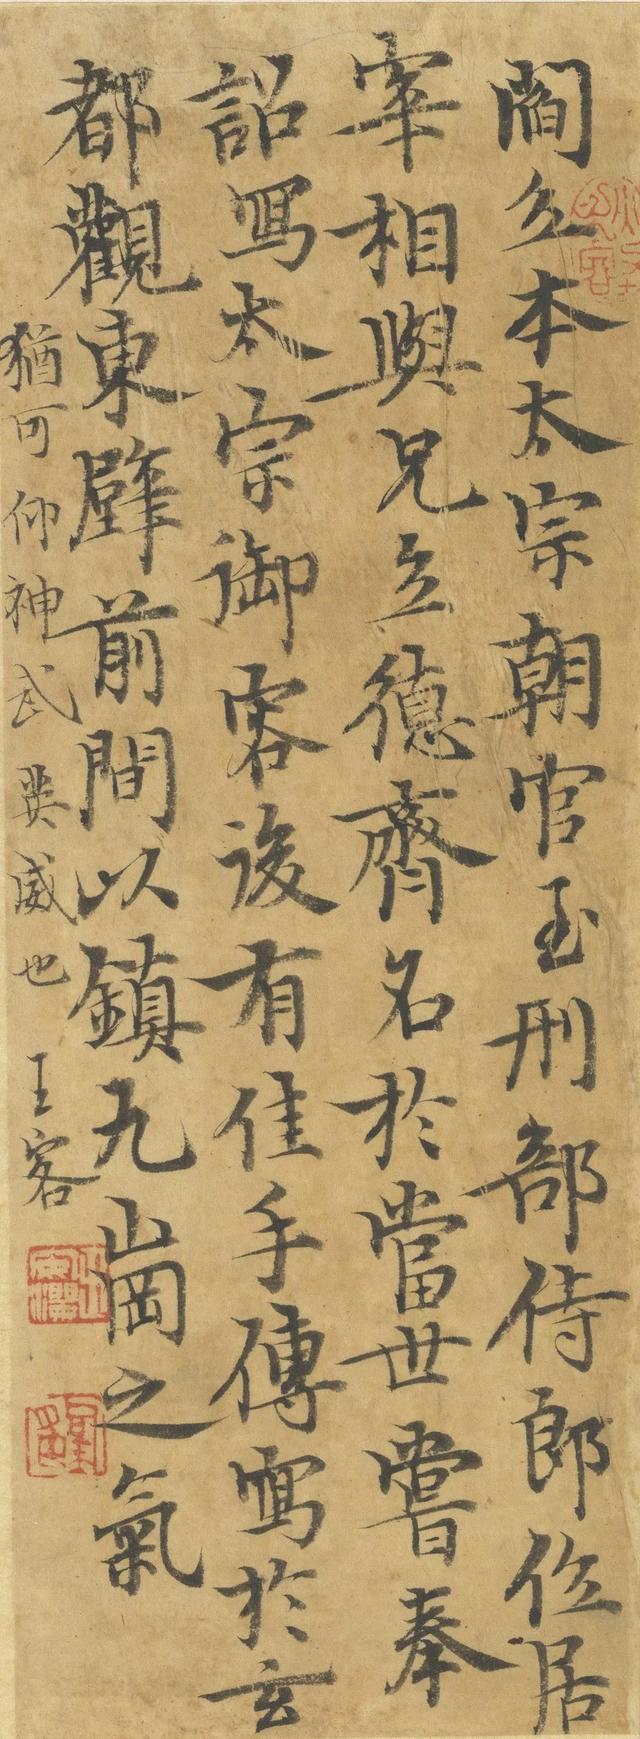 閻立本太宗朝官至刑部侍郎位居
宰相與兄立德齊名於當世嘗奉
詔寫太宗御容後有佳手傳寫於玄
都觀東壁前間以鎮九崗之氣
猶可仰神武英威也 王容